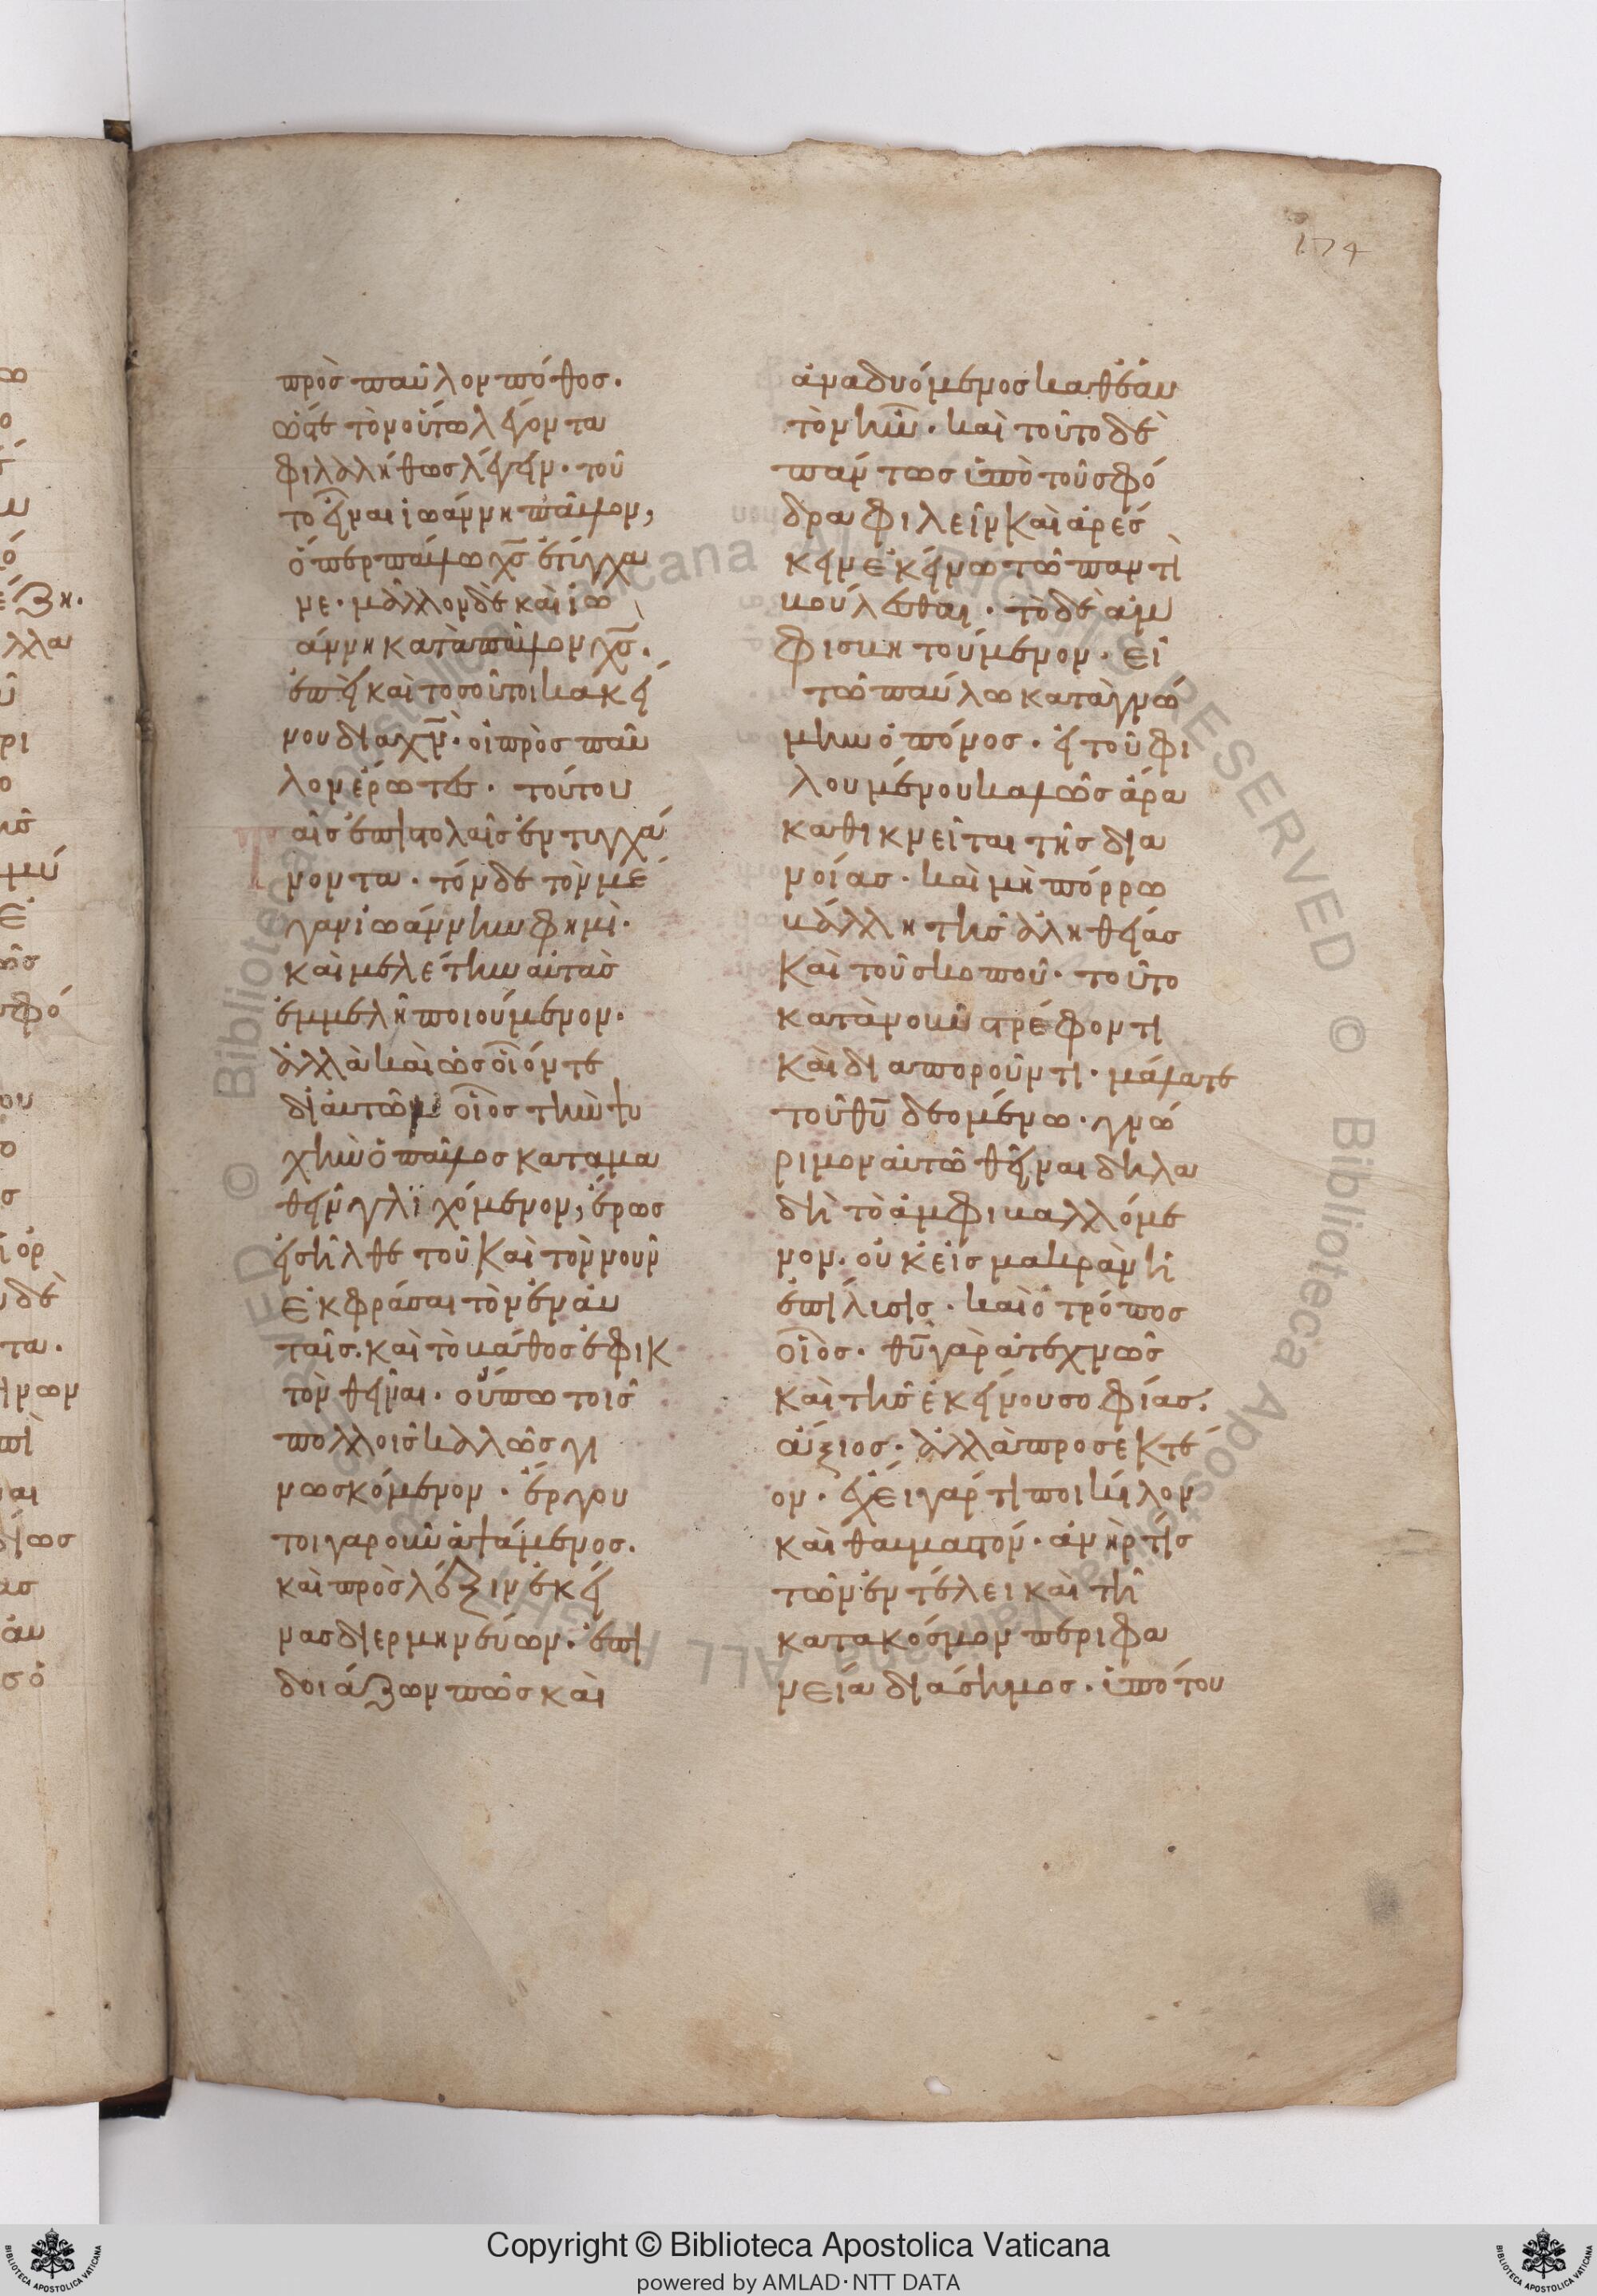 174
πρὸς παῦλον πόθος.
ὥστε τὸν οὕτω λέγοντα
φιλαλήθως λέγειν· τοῦ
το εἶναι ἰωάννη παῦλον,
ὅπερ παύλω χς ἐτύγχα
νε· μᾶλλον δὲ καὶ ἰω
άννη κατὰ παῦλον χς.
ἐπεὶ καὶ τοσοῦτοι κακεί
νου διὰ χν· οἱ πρὸς παῦ
λον ἔρωτες. τούτου
ταῖς ἐπιστολαῖς ἐντυγχά
νοντα· τόνδε τὸν μέ
γαν ἰωάννην φημί·
καὶ μελέτην αὐτὰς
ἐμμελῆ ποιούμενον·
ἀλλὰ καὶ ὡς οἷόν τε
δι αὐτῶν οἷος τὴν ψυ
χὴν ὁ παῦλος καταμα
θεῖν γλιχόμενον, ἔρως
εἰσῆλθε τοῦ καὶ τὸν νοῦν
ἐκφράσαι τὸν ἐν αὐ
ταῖς. καὶ τὸ βάθος ἐφικ
τὸν θεῖναι· οὔπω τοῖς
πολλοῖς καλῶς γι
νωσκόμενον· ἔργου
τοιγαροῦν ἁψάμενος.
καὶ πρὸς λέξιν ἐκεῖ
νας διερμηνεύων· ἐπι
δοιάζων πῶς καὶ
ἀναδυόμενος καθεαυ
τὸν ἦν· καὶ τοῦτο δὲ
πάντως ὑπὸ τοῦ σφό
δρα φιλεῖν καὶ ἀρέσ
κειν ἐκείνω τῶ παντὶ
βούλεσθαι· τὸ δὲ ἀμ
φισβητούμενον· εἰ
τῶ παύλω κατὰ γνώ
μην ὁ πόνος· εἰ τοῦ φι
λουμένου καλῶς ἄρα
καθικνεῖται τῆς δια
νοίας· καὶ μὴ πόρρω
βάλλη τῆς ἀληθείας
καὶ τοῦ σκοποῦ· τοῦτο
κατὰ νοῦν στρέφοντι
καὶ διαποροῦντι· μάλιστα
τοῦ θυ δεομένω· γνώ
ριμον αὐτῶ θεῖναι δηλα
δὴ τὸ ἀμφιβαλλόμε
νον. οὐκ εἰς μακρὰν ἡ
ἐπίλυσις· καὶ ὁ τρόπος
οἷος· θυ γὰρ ἀτεχνῶς
καὶ τῆς ἐκείνου σοφίας
ἄξιος· ἀλλὰ προσεκτέ
ον· ἔχει γάρ τι ποικίλον
καὶ θαυμαστόν· ἀνήρ τις
τῶν ἐν τέλει καὶ τῆ
κατὰ κόσμον περιφα
νεία διάσημος· ὑπό του
Copyright © Biblioteca Apostolica Vaticana
powered by AMLAD·NTT DATA